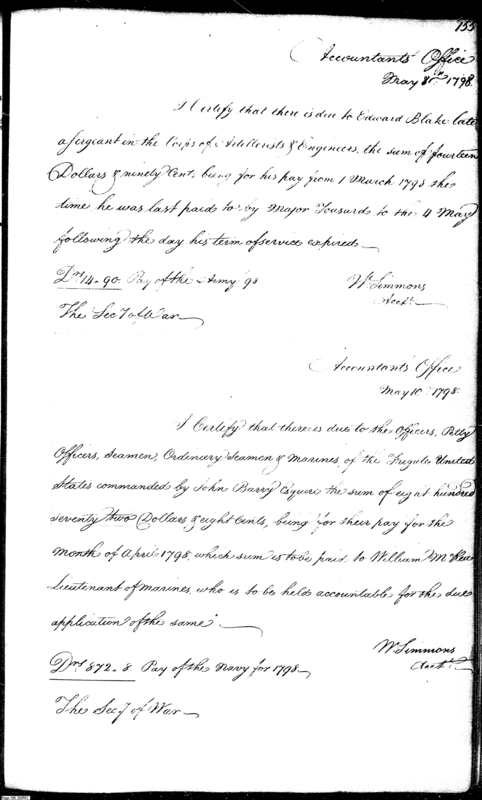 155
Accountants Office
May 8th 1798.
I Certify that there is due to Edward Blake late
a Sergeant in the Corps of Artillerists & Engineers, the sum of fourteen
Dollars & ninety Cents, being for his pay from 1 March 1798 the
time he was last paid to by Major Tousard to the 4 May
following the day his term of service expired
Drs 14-90. Pay of the Army 98
Wm Simmons
Acct.
The Secy of War
Accountants Office
May 10 1798.
I Certify that there is due to the Officers, Petty
Officers, Seamen, Ordinary Seamen & Marines, of the Frigate United
States commanded by John Barry Esquire the sum of eight hundred
seventy two Dollars & eight Cents, being for their pay for the
Month of April 1798, which sum is to be paid to William McRea
Lieutenant of Marines, who is to be held accountable for the due
application of the same.
W Simmons
Acct.
Drs 872-8 Pay of the Navy for 1798
The Secy of War